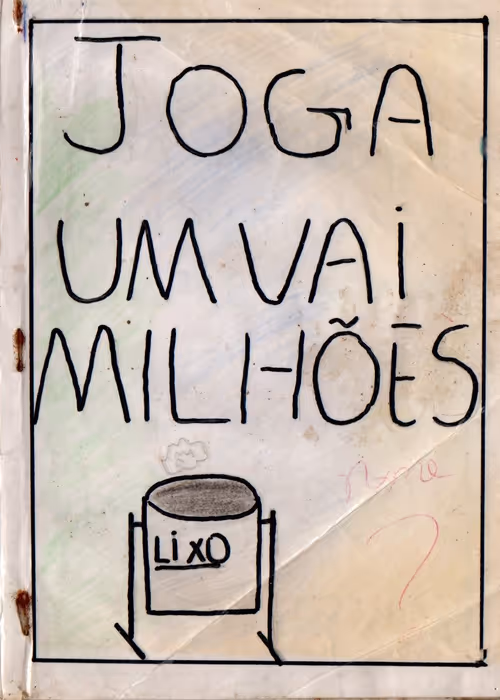 JOGA
UM VAI
MILHÕES
nome
?
LiXO